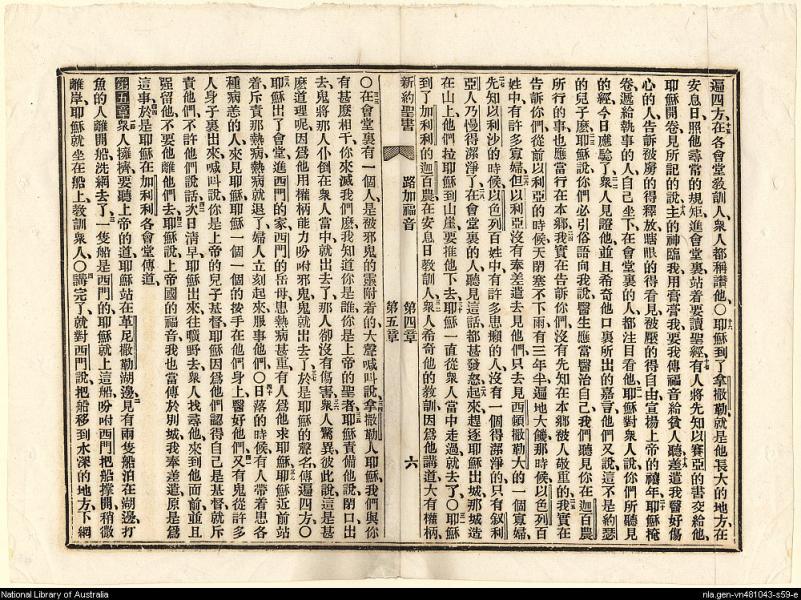 遍四方在各會堂教訓人衆人都稱讚他〇耶穌到了拿撒勒就是他長大的地方在
安息日照他尋常的規矩進會堂裏站着要讀聖經有人將先知以賽亞的書交給他
耶穌開卷見所記的說主的神臨我用膏膏我要我傳福音給貧人聽差遣我醫好傷
心的人告訴被虜的得釋放瞎眼的得看見被壓的得自由宣揚上帝的禧年耶穌掩
卷遞給執事的人自己坐下在會堂裏的人都注目看他耶穌對衆人說你們所聽見
的經今日應驗了衆人見證他並且希奇他口裏所出的嘉言他們又說這不是約瑟
的兒子麽耶穌說你們必引俗語向我說醫生應當醫治自己我們聽見你在迦百農
所行的事也應當行在本鄉我實在告訴你們沒有先知在本鄉被人敬重的我實在
告訴你們從前以利亞的時候天閉塞不下雨有三年半遍地大饑那時候以色列百
姓中有許多寡婦但以利亞沒有奉差遣去見他們只去見西頓撒勒大的一個寡婦
先知以利沙的時候以色列百姓中有許多患癩的人沒有一個得潔淨的只有叙利
亞人乃慢得潔淨了在會堂裏的人聽見這話都甚發怒起來趕逐耶穌出城那城造
在山上他們拉耶穌到山崖要推他下去耶穌一直從衆人當中走過就去了〇耶穌
到了加利利的迦百農在安息日教訓人衆人希奇他的教訓因爲他講道大有權柄
新約聖書 路加福音 第四章 第五章 六
〇在會堂裏有一個人是被邪鬼的靈附着的大聲喊叫說拿撒勒人耶穌我們與你
有甚麽相干你來滅我們麽我知道你是誰你是上帝的聖者耶穌責備他說閉口出
去鬼將那人仆倒在衆人當中就出去了那人卻沒有傷害衆人驚異彼此說這是甚
麽道理呢因爲他用權柄能力吩咐邪鬼邪鬼就出去了於是耶穌的聲名傳遍四方〇
耶穌出了會堂進西門的家西門的岳母患熱病甚重有人爲他求耶穌耶穌近前站
着斥責那熱病熱病就退了婦人立刻起來服事他們〇日落的時候有人帶着患各
種病恙的人來見耶穌耶穌一個一個的按手在他們身上醫好他們又有鬼從許多
人身子裏出來喊叫說你是上帝的兒子基督耶穌因爲他們認得自己是基督就斥
責他們不許他們說話次日清早耶穌出來往曠野去衆人找尋他來到他面前並且
强留他不要他離他們去耶穌說上帝國的福音我也當傳於別城我奉差遣原是爲
這事於是耶穌在加利利各會堂傳道
第五章衆人擁擠要聽上帝的道耶穌站在革尼撒勒湖邊見有兩隻船泊在湖邊打
魚的人離開船洗網去了一隻船是西門的耶穌就上這船吩咐西門把船撑開稍微
離岸耶穌就坐在船上教訓衆人〇講完了就對西門說把船移到水深的地方下網
National Library of Australia
nla.gen-vn481043-s59-e